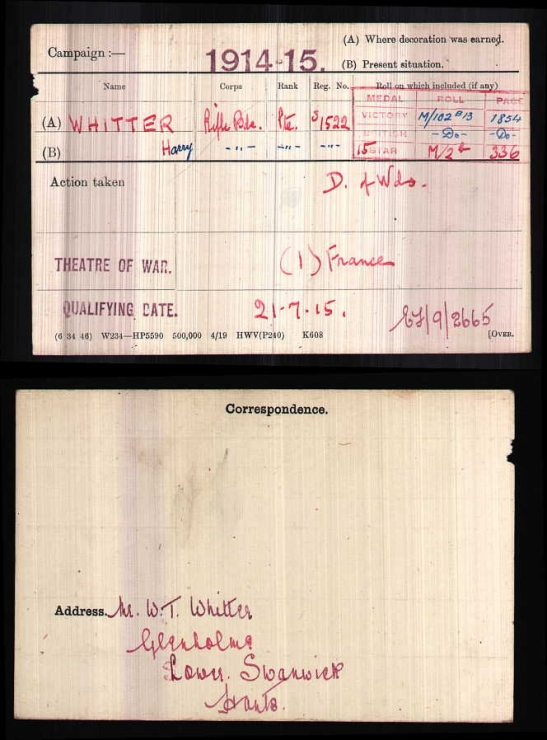 (A) Where decoration was earned.
Campaign :— 1914-15.
(B) Present situation.
Name Corps Rank Reg. No. Roll on which included (if any)
MEDAL ROLL PAGE
(A) WHITTER Rifle Bde. Pte. S/1522 VICTORY M/102 B13 1854
BRITISH -Do- -Do-
(B) Harry -"- -"- 15 STAR M/2 336
Action taken D. of Wds.
THEATRE OF WAR. (1) France
QUALIFYING DATE. 21-7-15. EF/9/2665
(6 34 46) W234—HP5590 500,000 4/19 HWV(P240) K608 [OVER.
Correspondence.
Address. Mr. W.T. Whitter
Glenholme
Lower. Swanwick
Hants.